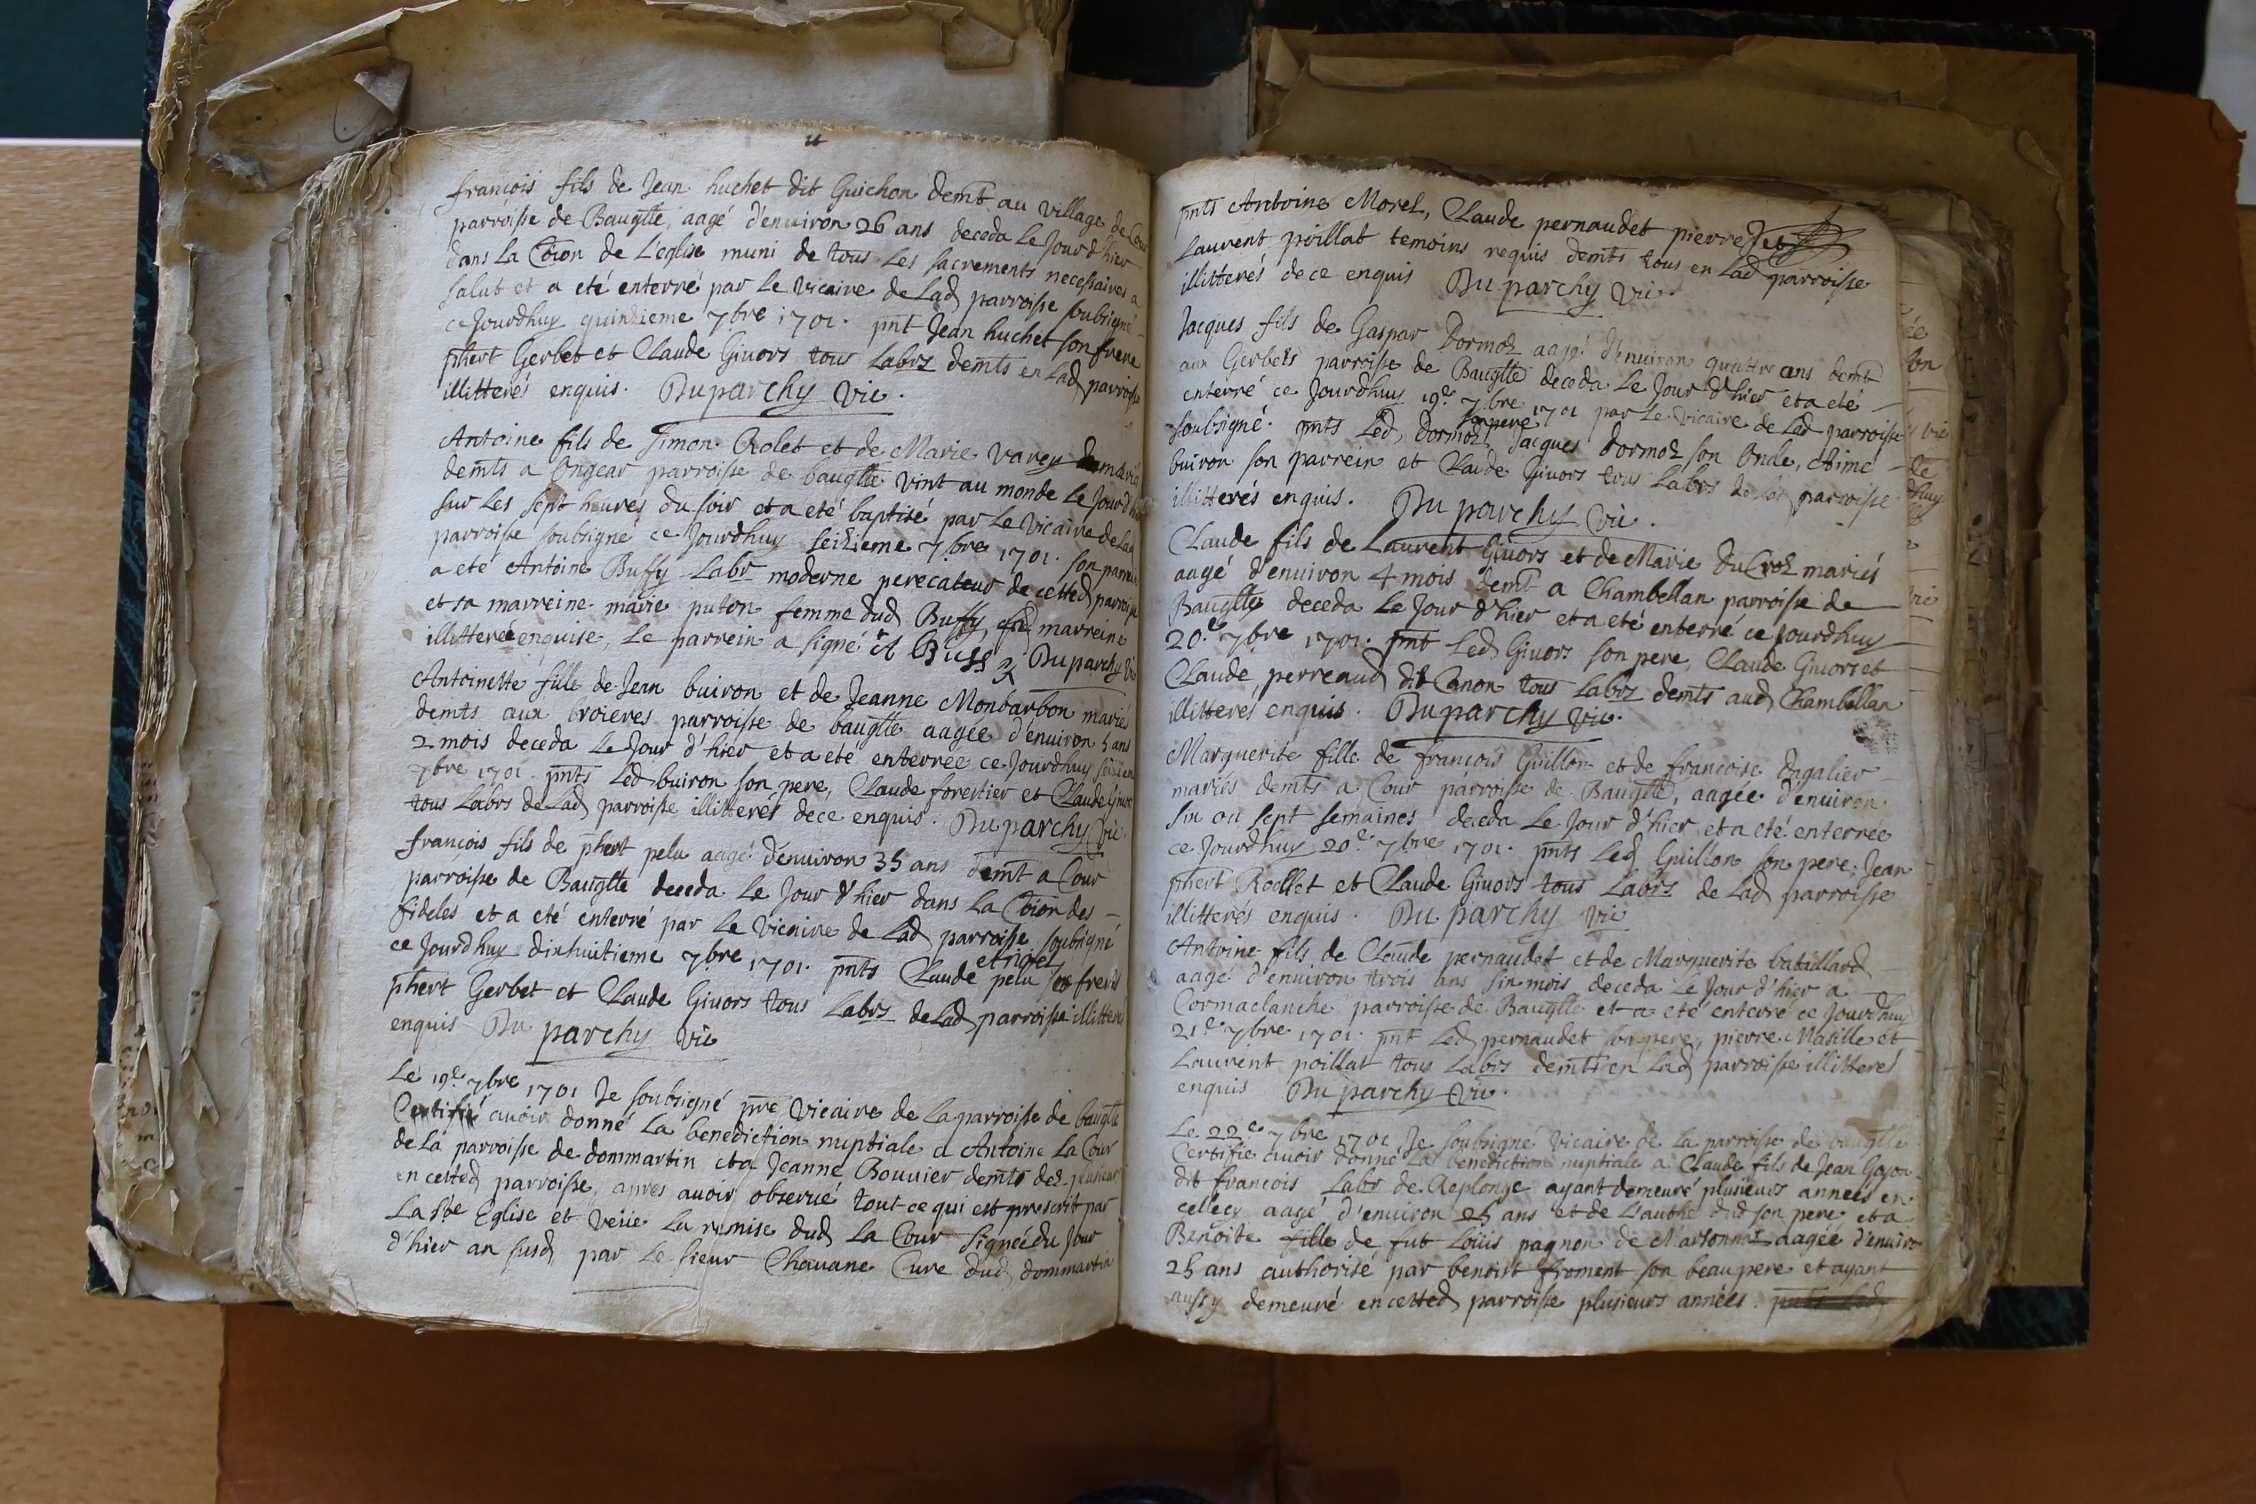 françois fils de Jean huchet dit Guichon demt au village de Cour
parroisse de Bauglte, aagé d'enuiron 26 ans deceda Le Jour d'hier
dans La Coion de L'eglise muni de tous Les sacrements necessaires a
salut et a eté enterré par Le Vicaire de Lad parroisse soubsigné
ce Jourdhuy quinzieme 7bre 1701. pnt Jean huchet son frere
phert Gerbet et Claude Giuors tous Labrs demts en Lad parroisse
illitterés enquis. Duparchy Vic.
Antoine fils de Simon Rolet et de Marie Varey
demts a Ongear parroisse de bauglte vint au monde Le Jour d'hier
sur Les sept heures du soir et a eté baptisé par Le Vicaire de Lad
parroisse soubsigné ce Jourdhuy seizieme 7bre 1701. son parrein
a eté Antoine Buffy Labr moderne perecateur de cetted parroisse
et sa marreine marie puton femme dud Buffy, lad marreine
illitterée enquise, Le parrein a signé A Buffy Duparchy Vic
Antoinette fille de Jean buiron et de Jeanne Monbarbon mariés
demts aux broieres parroisse de bauglte aagée d'enuiron 5 ans
2 mois deceda Le Jour d'hier et a eté enterrée ce Jourdhuy
7bre 1701. pnts Led buiron son pere, Claude forestier et Claude Giuors
tous Labrs de Lad parroisse illitterés de ce enquis. Duparchy Vic.
françois fils de phert pelu aagé d'enuiron 35 ans demt a Cour
parroisse de Bauglte deceda Le Jour d'hier dans La Coion des
fideles et a eté enterré par Le Vicaire de Lad parroisse soubsigné
ce Jourdhuy dixhuitieme 7bre 1701. pnts Claude pelu freres
phert Gerbet et Claude Giuors tous Labrs de Lad parroisse illitterés
enquis Du parchy Vic
Le 19e 7bre 1701 Je soubsigné pre Vicaire de La parroisse de bauglte
Certifié auoir donné La benediction nuptiale a Antoine La Cour
de La parroisse de dommartin et a Jeanne Bouuier demts dez plusieurs
en cetted parroisse, apres auoir obserué tout ce qui est prescrit par
La Ste Eglise et veüe La remise dud La Cour signée du Jour
d'hier an susd par Le sieur Chauane Cure dud dommartin
pnts Antoine Morel, Claude pernaudet pierre et
Laurent poillat temoins requis demts tous en Lad parroisse
illitterés de ce enquis Du parchy Vic.
Jacques fils de Gaspar Dormoz aagé d'enuiron quattre ans demt
aux Gerbets parroisse de Bauglte deceda Le Jour d'hier et a eté
enterré ce Jourdhuy 19e 7bre 1701 par Le Vicaire de Lad parroisse
soubsigné. pnts Led Dormoz son pere Jacques dormoz son Oncle, Aime
buiron son parrein et Claude Giuors tous Labrs de Lad parroisse
illitterés enquis. Du parchy Vic.
Claude fils de Laurent Giuors et de Marie du Croz mariés
aagé d'enuiron 4 mois demt a Chambellan parroisse de
Bauglte deceda Le Jour d'hier et a eté enterré ce Jourdhuy
20.e 7bre 1701. pnt Led Giuors son pere, Claude Giuors et
Claude perreaud dit Canon tous Labrs demts aud Chambellan
illitterés enquis. Duparchy Vic.
Marguerite fille de françois Guillon et de françoise dagalier
mariés demts a Cour parroisse de Bauglte, aagée d'enuiron
six ou sept semaines deceda Le Jour d'hier, et a eté enterrée
ce Jourdhuy 20e 7bre 1701. pnts Led Guillon son pere, Jean
phert Rollet et Claude Giuors tous Labrs de Lad parroisse
illitterés enquis. Du parchy Vic
Antoine fils de Claude pernaudet et de Marguerite bataillard
aagé d'enuiron trois ans six mois deceda Le Jour d'hier a
Cormaclanche parroisse de Bauglte et a eté enterré ce Jourdhuy
21e 7bre 1701. pnt Led pernaudet son pere, pierre Matille et
Laurent poillat tous Labrs demts en Lad parroisse illitterés
enquis Du parchy Vic.
Le 22e 7bre 1701 Je soubsigné Vicaire de La parroisse de bauglte
Certifie auoir donné La benediction nuptiale a Claude fils de Jean
dit françois Labr de Replonge ayant demeuré plusieurs années en
cellecy aagé d'enuiron 25 ans et de L'authé dud son pere et a
Benoite fille de fut Loüis pagnon de aagée d'enuiron
25 ans authorisé par benoist froment son beau pere et ayant
aussy demeuré en cetted parroisse plusieurs années. pnts Led